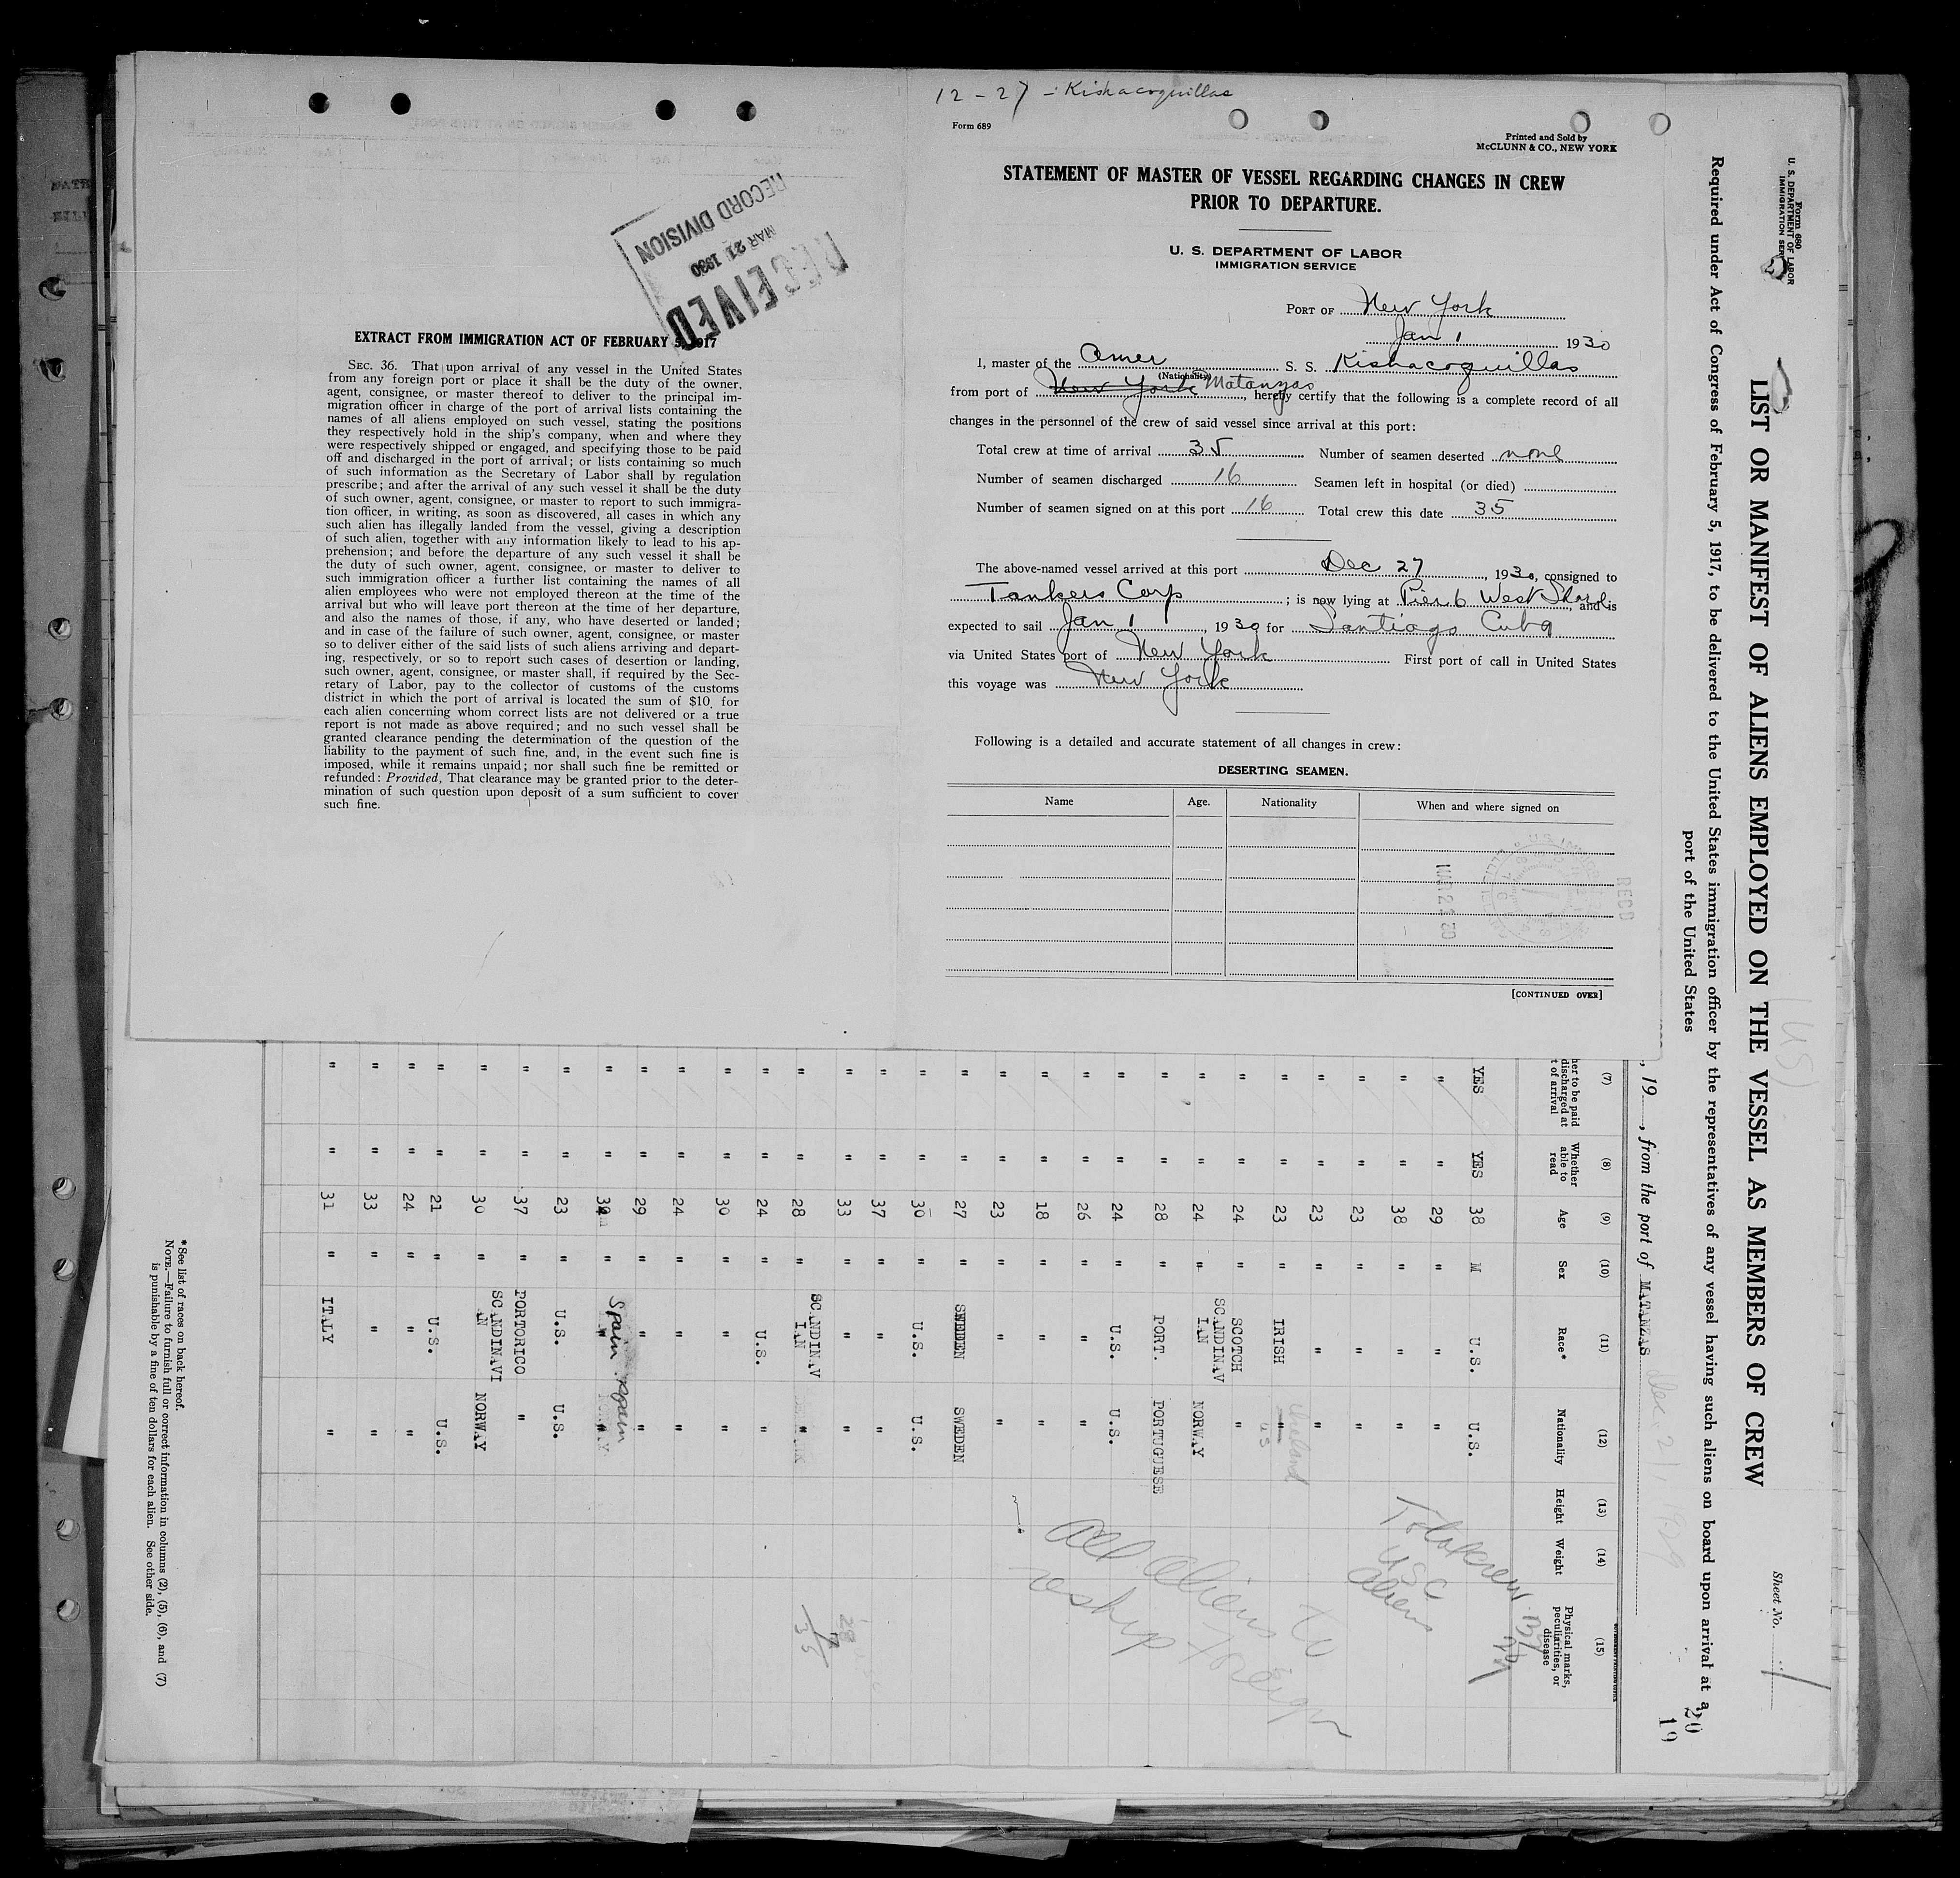 12 - 27 - Kishacoquillas
Form 689
Printed and Sold by
McCLUNN & CO., NEW YORK
STATEMENT OF MASTER OF VESSEL REGARDING CHANGES IN CREW
PRIOR TO DEPARTURE.
U. S. DEPARTMENT OF LABOR
IMMIGRATION SERVICE
PORT OF New York
Jan 1 1930
I, master of the Amer S. S. Kishacoquillas
(Nationality)
from port of New York Matanzas, hereby certify that the following is a complete record of all
changes in the personnel of the crew of said vessel since arrival at this port:
Total crew at time of arrival 35 Number of seamen deserted none
Number of seamen discharged 16 Seamen left in hospital (or died)
Number of seamen signed on at this port 16 Total crew this date 35
The above-named vessel arrived at this port Dec 27, 1930, consigned to
Tankers Corp; is now lying at Pier 6 West Shore, and is
expected to sail Jan 1, 1930 for Santiago Cuba
via United States port of New York First port of call in United States
this voyage was New York
Following is a detailed and accurate statement of all changes in crew:
DESERTING SEAMEN.
Name Age. Nationality When and where signed on
[CONTINUED OVER]
RECEIVED
MAR 21 1930
RECORD DIVISION
EXTRACT FROM IMMIGRATION ACT OF FEBRUARY 5, 1917
SEC. 36. That upon arrival of any vessel in the United States
from any foreign port or place it shall be the duty of the owner,
agent, consignee, or master thereof to deliver to the principal im-
migration officer in charge of the port of arrival lists containing the
names of all aliens employed on such vessel, stating the positions
they respectively hold in the ship's company, when and where they
were respectively shipped or engaged, and specifying those to be paid
off and discharged in the port of arrival; or lists containing so much
of such information as the Secretary of Labor shall by regulation
prescribe; and after the arrival of any such vessel it shall be the duty
of such owner, agent, consignee, or master to report to such immigra-
tion officer, in writing, as soon as discovered, all cases in which any
such alien has illegally landed from the vessel, giving a description
of such alien, together with any information likely to lead to his ap-
prehension; and before the departure of any such vessel it shall be
the duty of such owner, agent, consignee, or master to deliver to
such immigration officer a further list containing the names of all
alien employees who were not employed thereon at the time of the
arrival but who will leave port thereon at the time of her departure,
and also the names of those, if any, who have deserted or landed;
and in case of the failure of such owner, agent, consignee, or master
so to deliver either of the said lists of such aliens arriving and depart-
ing, respectively, or so to report such cases of desertion or landing,
such owner, agent, consignee, or master shall, if required by the Sec-
retary of Labor, pay to the collector of customs of the customs
district in which the port of arrival is located the sum of $10 for
each alien concerning whom correct lists are not delivered or a true
report is not made as above required; and no such vessel shall be
granted clearance pending the determination of the question of the
liability to the payment of such fine, and, in the event such fine is
imposed, while it remains unpaid; nor shall such fine be remitted or
refunded: Provided, That clearance may be granted prior to the deter-
mination of such question upon deposit of a sum sufficient to cover
such fine.
Form 680
U. S. DEPARTMENT OF LABOR
IMMIGRATION SERVICE
Sheet No. 1
LIST OR MANIFEST OF ALIENS EMPLOYED ON THE VESSEL AS MEMBERS OF CREW
Required under Act of Congress of February 5, 1917, to be delivered to the United States immigration officer by the representatives of any vessel having such aliens on board upon arrival at a
port of the United States
20
19
, 19, from the port of MATANZAS Dec 21, 1929
(7) (8) (9) (10) (11) (12) (13) (14) (15)
her to be paid discharged at t of arrival
Whether able to read
Age
Sex
Race*
Nationality
Height
Weight
Physical marks, peculiarities, or disease
YES YES 38 M U.S. U.S.
" " 29 " " "
" " 38 " " "
" " 23 " " "
" " 23 " " "
" " 23 " IRISH " Ireland
" " 24 " SCOTCH " US
" " 24 " SCANDINAVIAN NORWAY
" " 28 " PORT. PORTUGUESE
" " 24 " U.S. U.S.
" " 26 " " "
" " 18 " " "
" " 23 " " "
" " 27 " SWEDEN SWEDEN
" " 30 " U.S. U.S.
" " 37 " " "
" " 33 " " "
" " 28 " SCANDINAVIAN "
" " 24 " U.S. "
" " 30 " " "
" " 24 " " "
" " 29 " " "
" " 30 " Spain Spain
" " 23 " U.S. U.S.
" " 37 " PORTORICO "
" " 30 " SCANDINAVIAN NORWAY
" " 21 " U.S. U.S.
" " 24 " " "
" " 33 " " "
" " 31 " ITALY "
Total crew
USC
Aliens
All Aliens to
reship foreign
28
7
35
*See list of races on back hereof.
NOTE.—Failure to furnish full or correct information in columns (2), (5), (6), and (7)
is punishable by a fine of ten dollars for each alien. See other side.